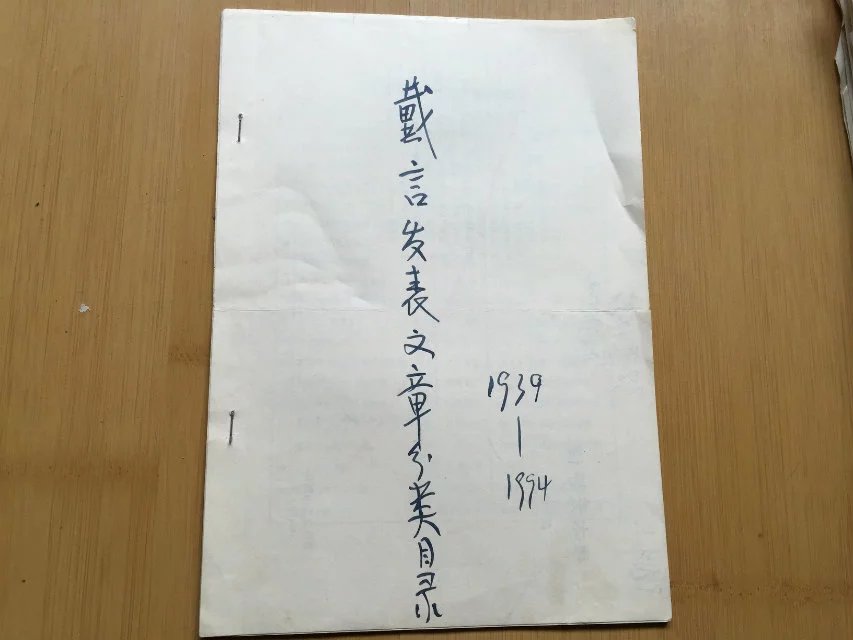 戴言发表文章分类目录
1939
|
1994